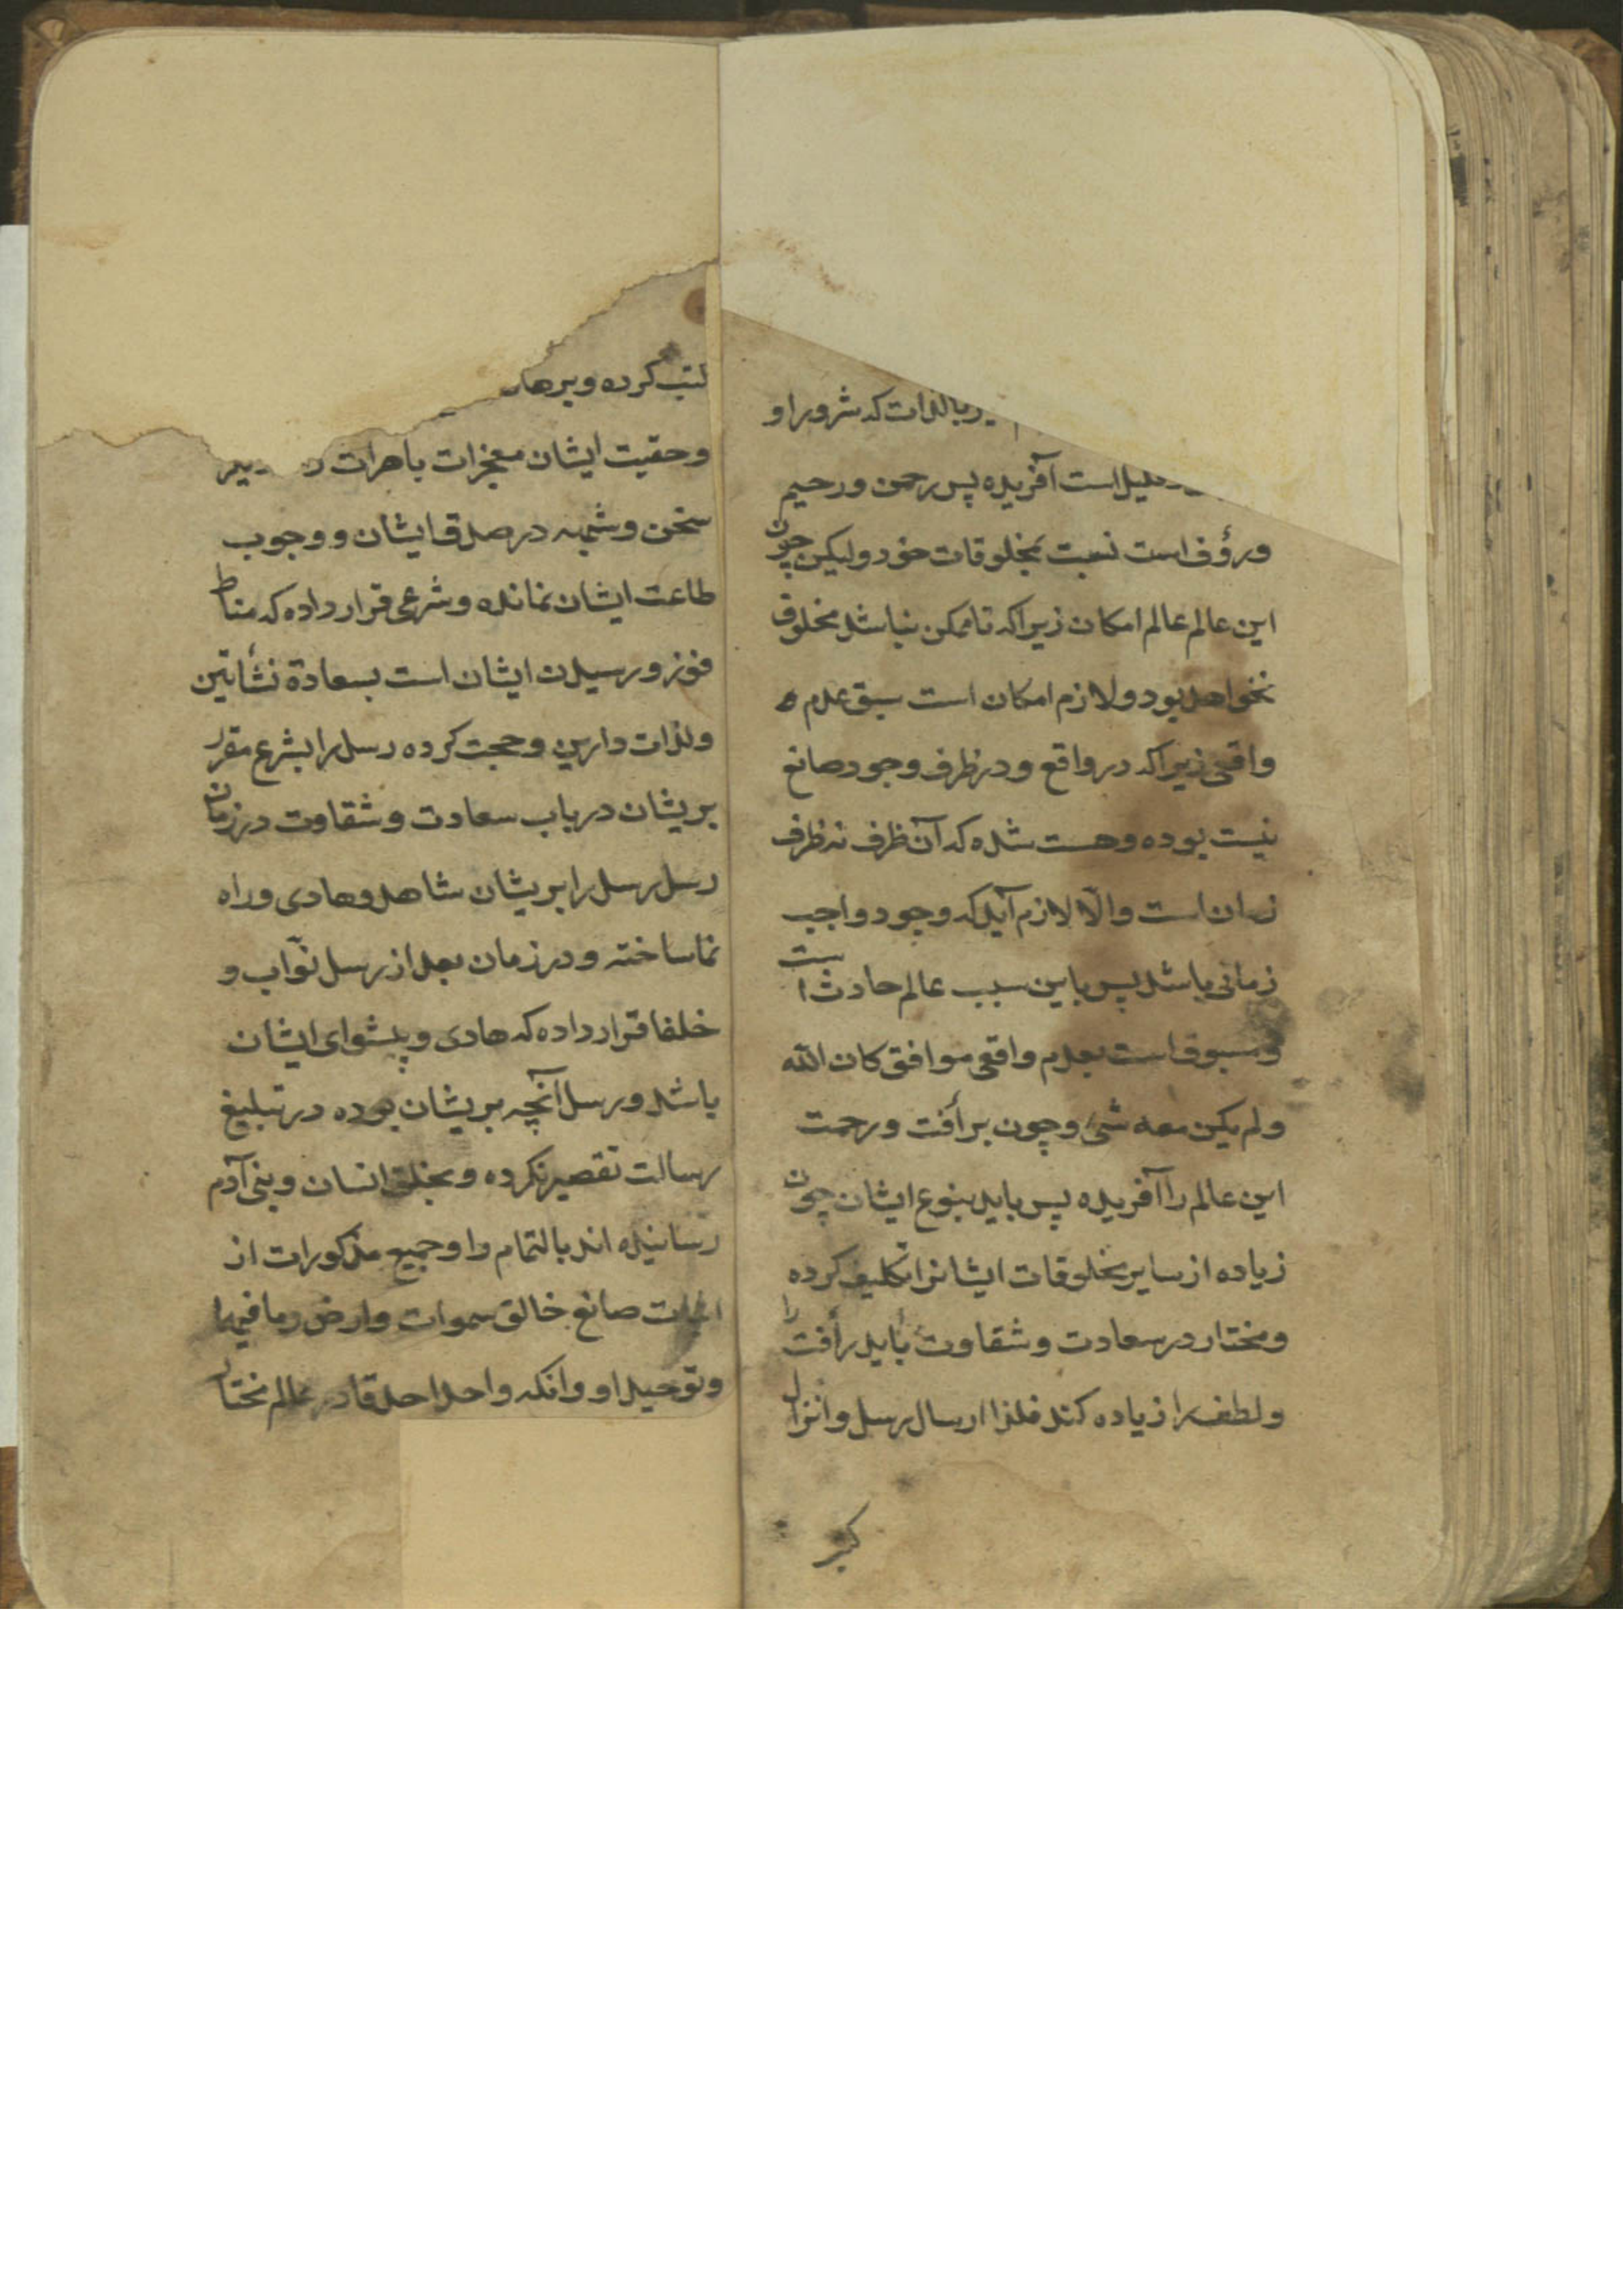 بالذات که شرور او
قلیل است آفریده پس رحمن و رحیم
و رؤف است نسبت بمخلوقات خود و لیکن چون
این عالم عالم امکان زیرا که تا ممکن نباشد مخلوق
نخواهد بود و لازم امکان است سبق عدم
واقعی زیرا که در واقع و در ظرف وجود صانع
نیست بوده و هست شده که آن ظرف نه ظرف
زمان است و الّا لازم آید که وجود واجب
زمانی باشد پس باین سبب عالم حادث است
و مسبوق است بعدم واقعی موافق کان الله
و لم یکن معه شئ و چون برأفت و رحمت
این عالم را آفریده پس باید بنوع ایشان چون
زیاده از سایر مخلوقات ایشانرا تکلیف کرده
و مختار در سعادت و شقاوت باید رأفت را
و لطف را زیاده کند فلذا ارسال رسل و انزال
کتب
کتب کرده و برهان
و حقیت ایشان معجزات باهرات
سخن و شبهه در صدق ایشان و وجوب
طاعت ایشان نمانده و شرعی قرار داده که مناط
فوز و رسیدن ایشان است بسعادة نشأتین
و لذات دارین و حجت کرده رسل را بشرع مقرر
بریشان در باب سعادت و شقاوت در زمان
رسل رسل را بریشان شاهد و هادی و راه
نما ساخته و در زمان بعد از رسل نوّاب و
خلفا قرار داده که هادی و پیشوای ایشان
باشد و رسل آنچه بریشان بوده در تبلیغ
رسالت تقصیر نکرده و بخلق انسان و بنی آدم
رسانیده اند بالتمام و او جمیع مذکورات از
اثبات صانع خالق سموات و ارض و ما فیها
و توحید او و انکه واحد احد قادر عالم مختار